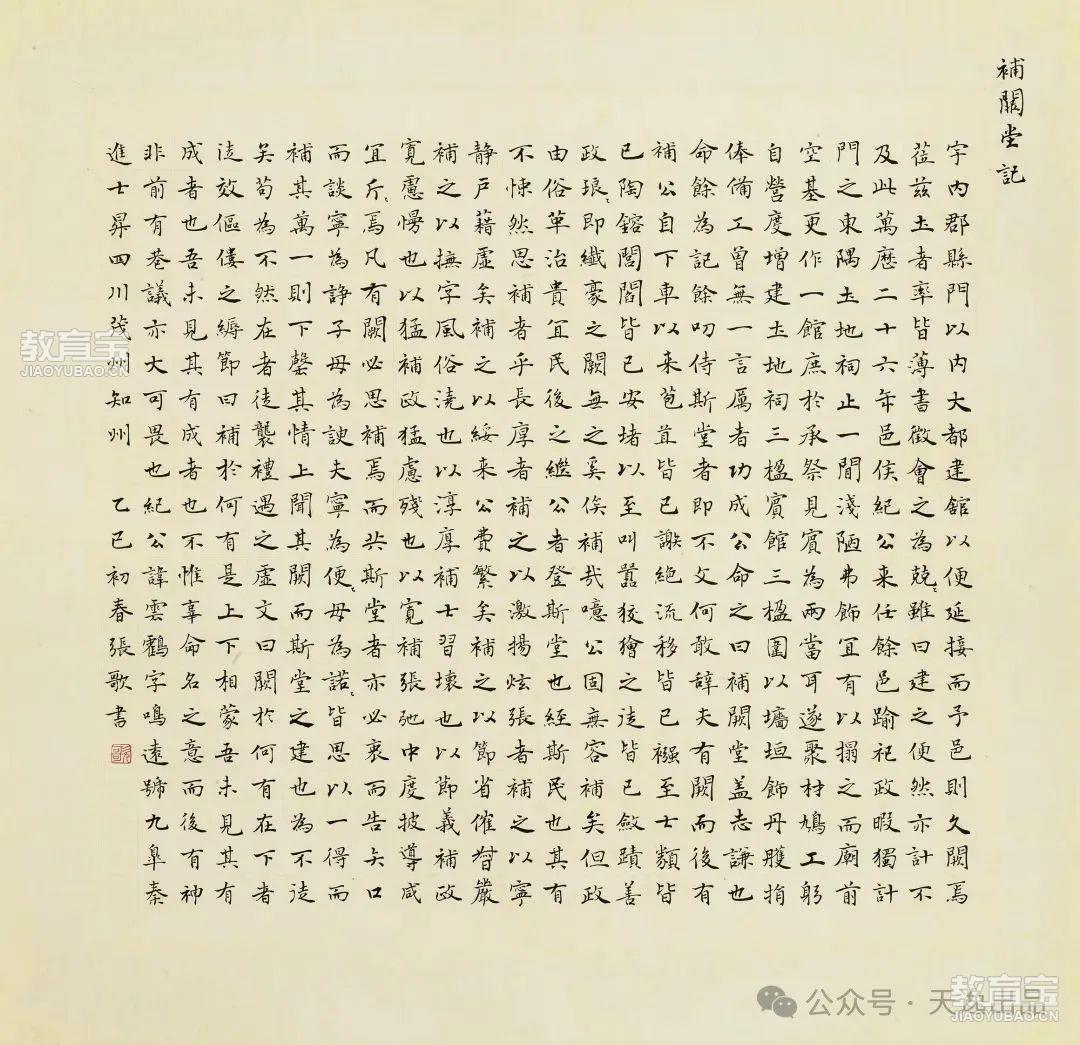 補闕堂記
宇內郡縣門以內大都建館以便延接而予邑則久闕焉
蒞茲土者率皆薄書徵會之為兢〻雖曰建之便然亦計不
及此萬歷二十六年邑侯紀公来任餘邑踰祀政暇獨計
門之東隅土地祠止一間淺陋弗飾宜有以搨之而廟前
空基更作一館庶於承祭見賓為兩當耳遂聚材鳩工躬
自營度增建土地祠三楹賓館三楹圍以墻垣飾丹雘捐
俸備工曾無一言屬者功成公命之曰補闕堂盖志謙也
命餘為記餘叨侍斯堂者即不文何敢辞夫有闕而後有
補公自下車以来苞苴皆已謝絕流移皆已襁至士類皆
已陶鎔閭閻皆已安堵以至叫囂狡獪之徒皆已斂蹟善
政琅〻即纖豪之闕無之奚俟補哉噫公固無容補矣但政
由俗革治貴宜民後之繼公者登斯堂也經斯民也其有
不悚然思補者乎長厚者補之以激揚炫張者補之以寧
静戶藉虛矣補之以綏来公費繁矣補之以節省催督嚴
補之以撫字風俗澆也以淳厚補士習壞也以節義補政
寬慮慢也以猛補政猛慮殘也以寬補張弛中度披導咸
宜斤〻焉凡有闕必思補焉而共斯堂者亦必衷而告矢口
而談寧為諍子毋為諛夫寧為便〻毋為諾〻皆思以一得而
補其萬一則下罄其情上聞其闕而斯堂之建也為不徒
矣苟為不然在者徒襲禮遇之虛文曰闕於何有在下者
徒效傴僂之縟節曰補於何有是上下相蒙吾未見其有
成者也吾未見其有成者也不惟辜命名之意而後有神
非前有巷議亦大可畏也紀公諱雲鶴字鳴遠號九皋秦
進士昇四川茂州知州 乙巳初春張歌書
教育宝
JIAOYUBAO.CN
公众号·天
教育宝
JIAOYUBAO.CN